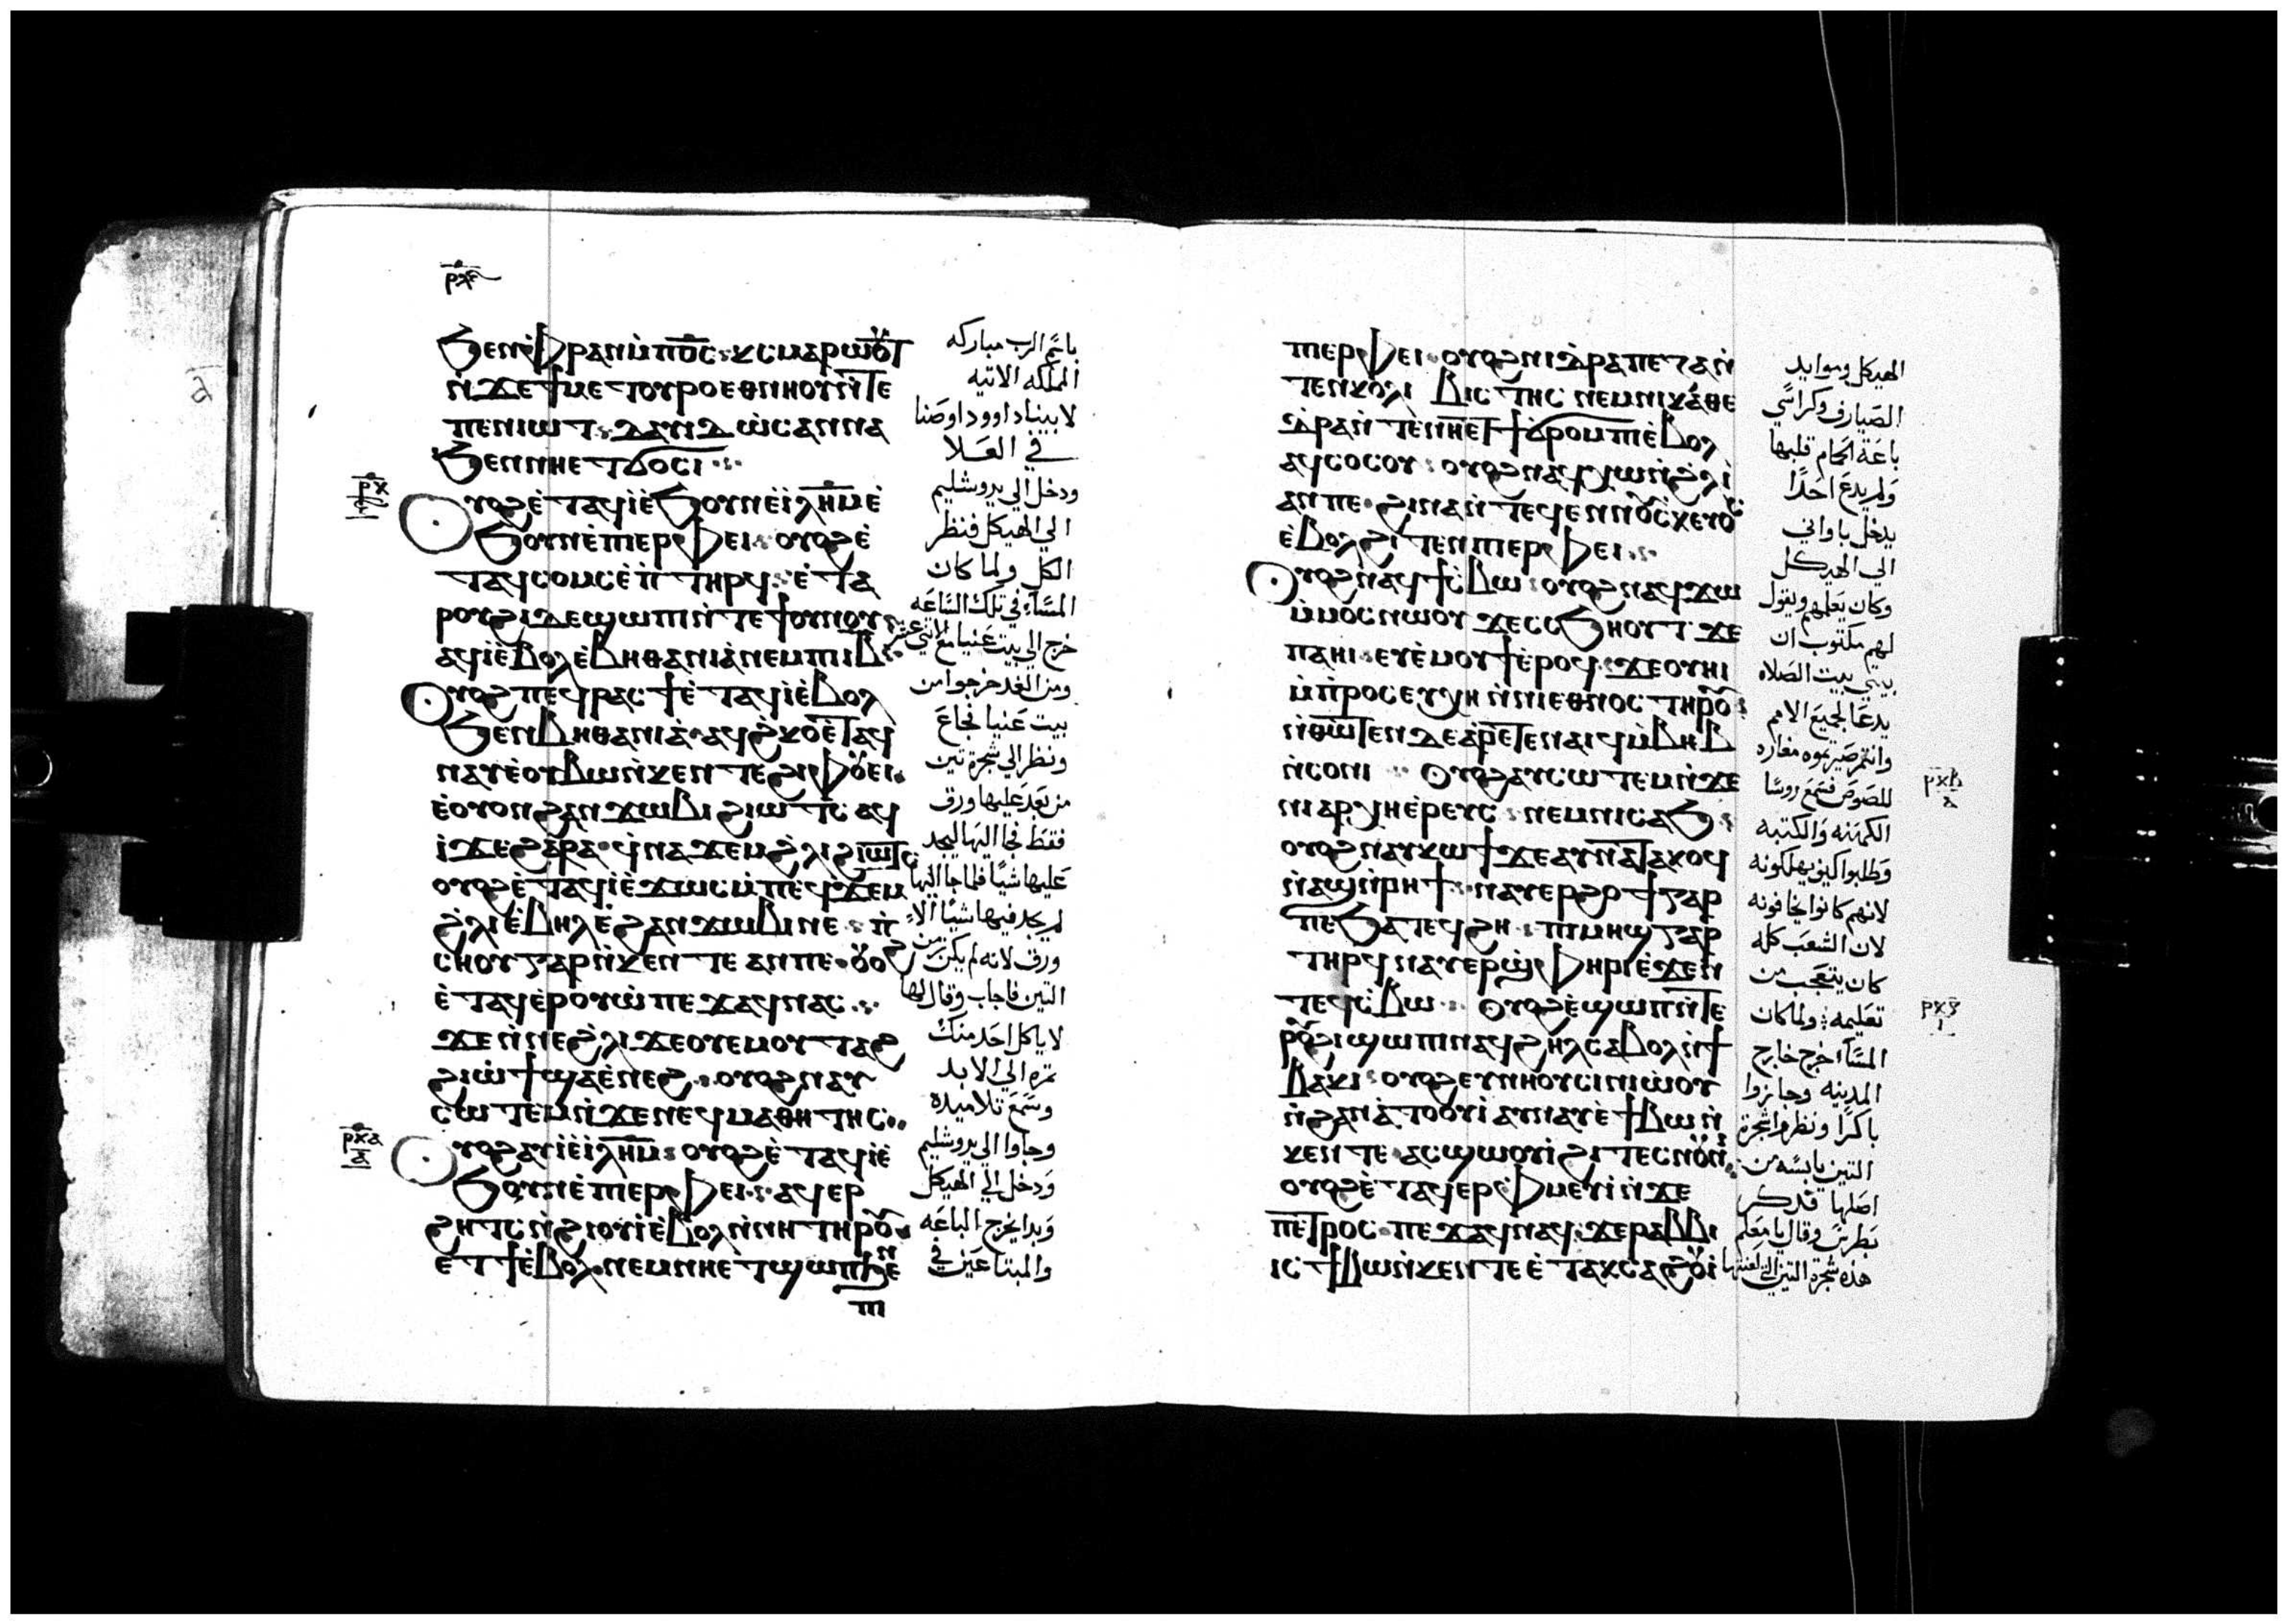 ϧⲉⲛⲫⲣⲁⲛⲙ̀ⲡⲟ̅ⲥ̅ ϥⲥⲙⲁⲣⲱⲟⲩⲧ
ⲛ̀ϫⲉϯⲙⲉⲧⲟⲩⲣⲟⲉⲑⲛⲏⲟⲩⲛ̀ⲧⲉ
ⲡⲉⲛⲓⲱⲧ ⲇⲁⲩⲇ ⲱ̀ⲥⲁⲛⲛⲁ
ϧⲉⲛⲛⲏⲉⲧϭⲟⲥⲓ
ⲟⲩⲟϩⲉ̀ⲧⲁϥⲓⲉ̀ϧⲟⲩⲛⲉ̀ⲓⲗⲏ̅ⲙ̅ⲉ̀
ϧⲟⲩⲛⲉ̀ⲡⲓⲉⲣⲫⲉⲓ ⲟⲩⲟϩⲉ̀
ⲧⲁϥⲥⲟⲙⲥⲉ̀ⲡ̀ⲧⲏⲣϥ ⲉ̀ⲧⲁ
ⲣⲟⲩϩⲓⲇⲉϣⲱⲡⲓⲛ̀ⲧⲉϯⲟⲩⲛⲟⲩ
ⲁϥⲓⲉ̀ⲃⲟⲗⲉ̀ⲃⲏⲑⲁⲛⲓⲁ̀ⲛⲉⲙⲡⲓⲓ̅ⲃ̅
ⲟⲩⲟϩⲡⲉϥⲣⲁⲥϯⲉ̀ⲧⲁϥⲓⲉ̀ⲃⲟⲗ
ϧⲉⲛⲃⲏⲑⲁⲛⲓⲁ̀ ⲁϥϩ̀ⲕⲟ ⲉ̀ⲧⲁϥ
ⲛⲁⲩⲉ̀ⲟⲩⲃⲱⲛ̀ⲕⲉⲛⲧⲉϩⲓⲫⲟⲩⲉⲓ
ⲉ̀ⲟⲩⲟⲛϩⲁⲛϫⲱⲃⲓϩⲓⲱⲧⲥ ⲁϥ
ⲓ̀ϫⲉϩⲁⲣⲁ ϥⲛⲁϫⲉⲙϩ̀ⲗⲓϩⲓⲱⲧⲥ
ⲟⲩⲟϩⲉ̀ⲧⲁϥⲓⲉ̀ϫⲱⲥⲙ̀ⲡⲉϥϫⲉⲙ
ϩ̀ⲗⲓⲉ̀ⲃⲏⲗⲉ̀ϩⲁⲛϫⲱⲃⲓⲛⲉ ⲛ̀
ⲥⲏⲟⲩⲅⲁⲣⲛ̀ⲕⲉⲛⲧⲉⲁⲛⲡⲉ ⲟⲩⲟϩ
ⲉ̀ⲧⲁϥⲉ̀ⲣⲟⲩⲱ̀ⲡⲉϫⲁϥⲛⲁⲥ
ϫⲉⲛ̀ⲛⲉϩ̀ⲗⲓϫⲉⲟⲩⲉⲙⲟⲩⲧⲁϩ
ϩⲓⲱ̀ϯϣⲁⲉ̀ⲛⲉϩ ⲟⲩⲟϩⲛⲁⲩ
ⲥⲱⲧⲉⲙⲛ̀ϫⲉⲛⲉϥⲙⲁⲑⲏⲧⲏⲥ
ⲟⲩⲟϩⲁⲩⲓⲉ̀ⲓⲗⲏ̅ⲙ̅ ⲟⲩⲟϩⲉ̀ⲧⲁϥⲓⲉ̀
ϧⲟⲩⲛⲉ̀ⲡⲓⲉⲣⲫⲉⲓ ⲁϥⲉⲣ
ϩⲏⲧⲥⲛ̀ϩⲓⲟⲩⲓⲉ̀ⲃⲟⲗⲛ̀ⲛⲏⲧⲏⲣⲟⲩ
ⲉⲧϯⲉ̀ⲃⲟⲗ ⲛⲉⲙⲛⲏⲉⲧϣⲱⲡϧⲉⲛ
ⲡⲓ
باسم الرب مباركه
المملكه الاتيه
لابينا داوود اوصنا
في العلا
ودخل الي يروشليم
الي الهيكل فنظر
الكل ولما كان
المساء في تلك الساعه
خرج الي بيت عنيا مع الاتني عشر
ومن الغد خرجوا من
بيت عنيا فجاع
ونظر الي شجرة تين
من بعد عليها ورق
فقط فجا اليها ليجد
عليها شيا فلما جا اليها
لم يجد فيها شيا الا
ورق لانه لم يكن زمن
التين فاجاب وقال لها
لا ياكل احد منك
تمره الي الابد
وسمع تلاميذه
وجاوا الي يروشليم
ودخل الي الهيكل
وبدا يخرج الباعه
والمبتاعين في
ⲡⲓⲉⲣⲫⲉⲓ ⲟⲩⲟϩⲛⲓⲧ̀ⲣⲁⲡⲉⲍⲁⲛ̀
ⲧⲉⲛⲓⲕⲟⲗⲗⲓⲃⲓⲥⲧⲏⲥ ⲛⲉⲙⲛⲓⲕⲁⲑⲉ
ⲇ̀ⲣⲁⲛ̀ⲧⲉⲛⲏⲉⲧϯϭⲣⲟⲙⲡⲓⲉ̀ⲃⲟⲗ
ⲁϥⲥⲟⲥⲟⲩ ⲟⲩⲟϩⲛⲁϥⲭⲱⲛ̀ϩ̀ⲗⲓ
ⲁⲛⲡⲉ ϩⲓⲛⲁⲛ̀ⲧⲉϥⲉⲛⲛⲟⲩⲥ̀ⲕⲉⲩⲟⲥ
ⲉ̀ⲃⲟⲗϩⲓⲧⲉⲛⲡⲓⲉⲣⲫⲉⲓ
ⲟⲩⲟϩⲛⲁϥϯⲥ̀ⲃⲱ ⲟⲩⲟϩⲛⲁϥϫⲱ
ⲙ̀ⲙⲟⲥⲛⲱⲟⲩ ϫⲉⲥⲥϧⲏⲟⲩⲧ ϫⲉ
ⲡⲁⲏⲓ ⲉⲩⲉ̀ⲙⲟⲩϯⲉ̀ⲣⲟϥ ϫⲉⲟⲩⲏⲓ
ⲙ̀ⲡ̀ⲣⲟⲥⲉⲩⲭⲏⲛ̀ⲛⲓⲉⲑⲛⲟⲥⲧⲏⲣⲟⲩ
ⲛ̀ⲑⲱⲧⲉⲛⲇⲉⲁ̀ⲣⲉⲧⲉⲛⲁⲓϥⲙ̀ⲃⲏⲃ
ⲛ̀ⲥⲟⲛⲓ ⲟⲩⲟϩⲁⲩⲥⲱⲧⲉⲙⲛ̀ϫⲉ
ⲛⲓⲁⲣⲭⲏⲉ̀ⲣⲉⲩⲥ ⲛⲉⲙⲛⲓⲥⲁϧ
ⲟⲩⲟϩⲛⲁⲩⲕⲱϯϫⲉⲁⲩⲛⲁⲧⲁⲕⲟϥ
ⲛ̀ⲁϣⲛ̀ⲣⲏϯ ⲛⲁⲩⲉⲣϩⲟϯⲅⲁⲣ
ⲡⲉϧⲁⲧⲉϥϩⲏ ⲡⲓⲙⲏϣⲅⲁⲣ
ⲧⲏⲣϥⲛⲁⲩⲉⲣϣ̀ⲫⲏⲣⲓⲉ̀ϫⲉⲛ
ⲧⲉϥⲥ̀ⲃⲱ ⲟⲩⲟϩⲉ̀ϣⲱⲡⲛ̀ⲧⲉ
ⲣⲟⲩϩⲓϣⲱⲡⲓⲛⲁϥϩⲏⲗⲥⲁⲃⲟⲗⲛ̀ϯ
ⲃⲁⲕⲓ ⲟⲩⲟϩⲉⲩⲛⲏⲟⲩⲥⲓⲛⲓⲱ̀ⲟⲩ
ⲛ̀ϩⲁⲛⲁ̀ⲧⲟⲟⲩⲓ̀ⲁⲩⲛⲁⲩⲉ̀ϯⲃⲱⲛ̀
ⲕⲉⲛⲧⲉ ⲁⲥϣⲱⲟⲩⲓ̀ϩⲓⲧⲉⲥⲛⲟⲩⲛⲓ
ⲟⲩⲟϩⲉ̀ⲧⲁϥⲉⲣⲫⲙⲉⲩⲓ̀ⲛ̀ϫⲉ
ⲡⲉⲧⲣⲟⲥ ⲡⲉϫⲁϥⲛⲁϥ ϫⲉⲣⲁⲃⲃⲓ
ⲓⲥϯⲃⲱⲛ̀ⲕⲉⲛⲧⲉⲉ̀ⲧⲁⲕⲥⲁϩⲟⲩⲓ
الهيكل وموايد
الصيارف وكراسي
باعة الحمام قلبها
ولم يدع احدا
يدخل باواني
الي الهيكل
وكان يعلمهم ويقول
لهم مكتوب ان
بيتي بيت الصلاه
يدعا لجميع الامم
وانتم صيرتموه مغاره
للصوص فسمع روسا
الكهنه والكتبه
وطلبوا كيف يهلكونه
لانهم كانوا يخافونه
لان الشعب كله
كان يتعجب من
تعليمه ولما كان
المسا خرج خارج
المدينه وجازوا
باكرا ونظروا شجرة
التين يابسه من
اصلها فدكر
بطرس وقال يا معلم
هذه شجرة التين التي لعنتها